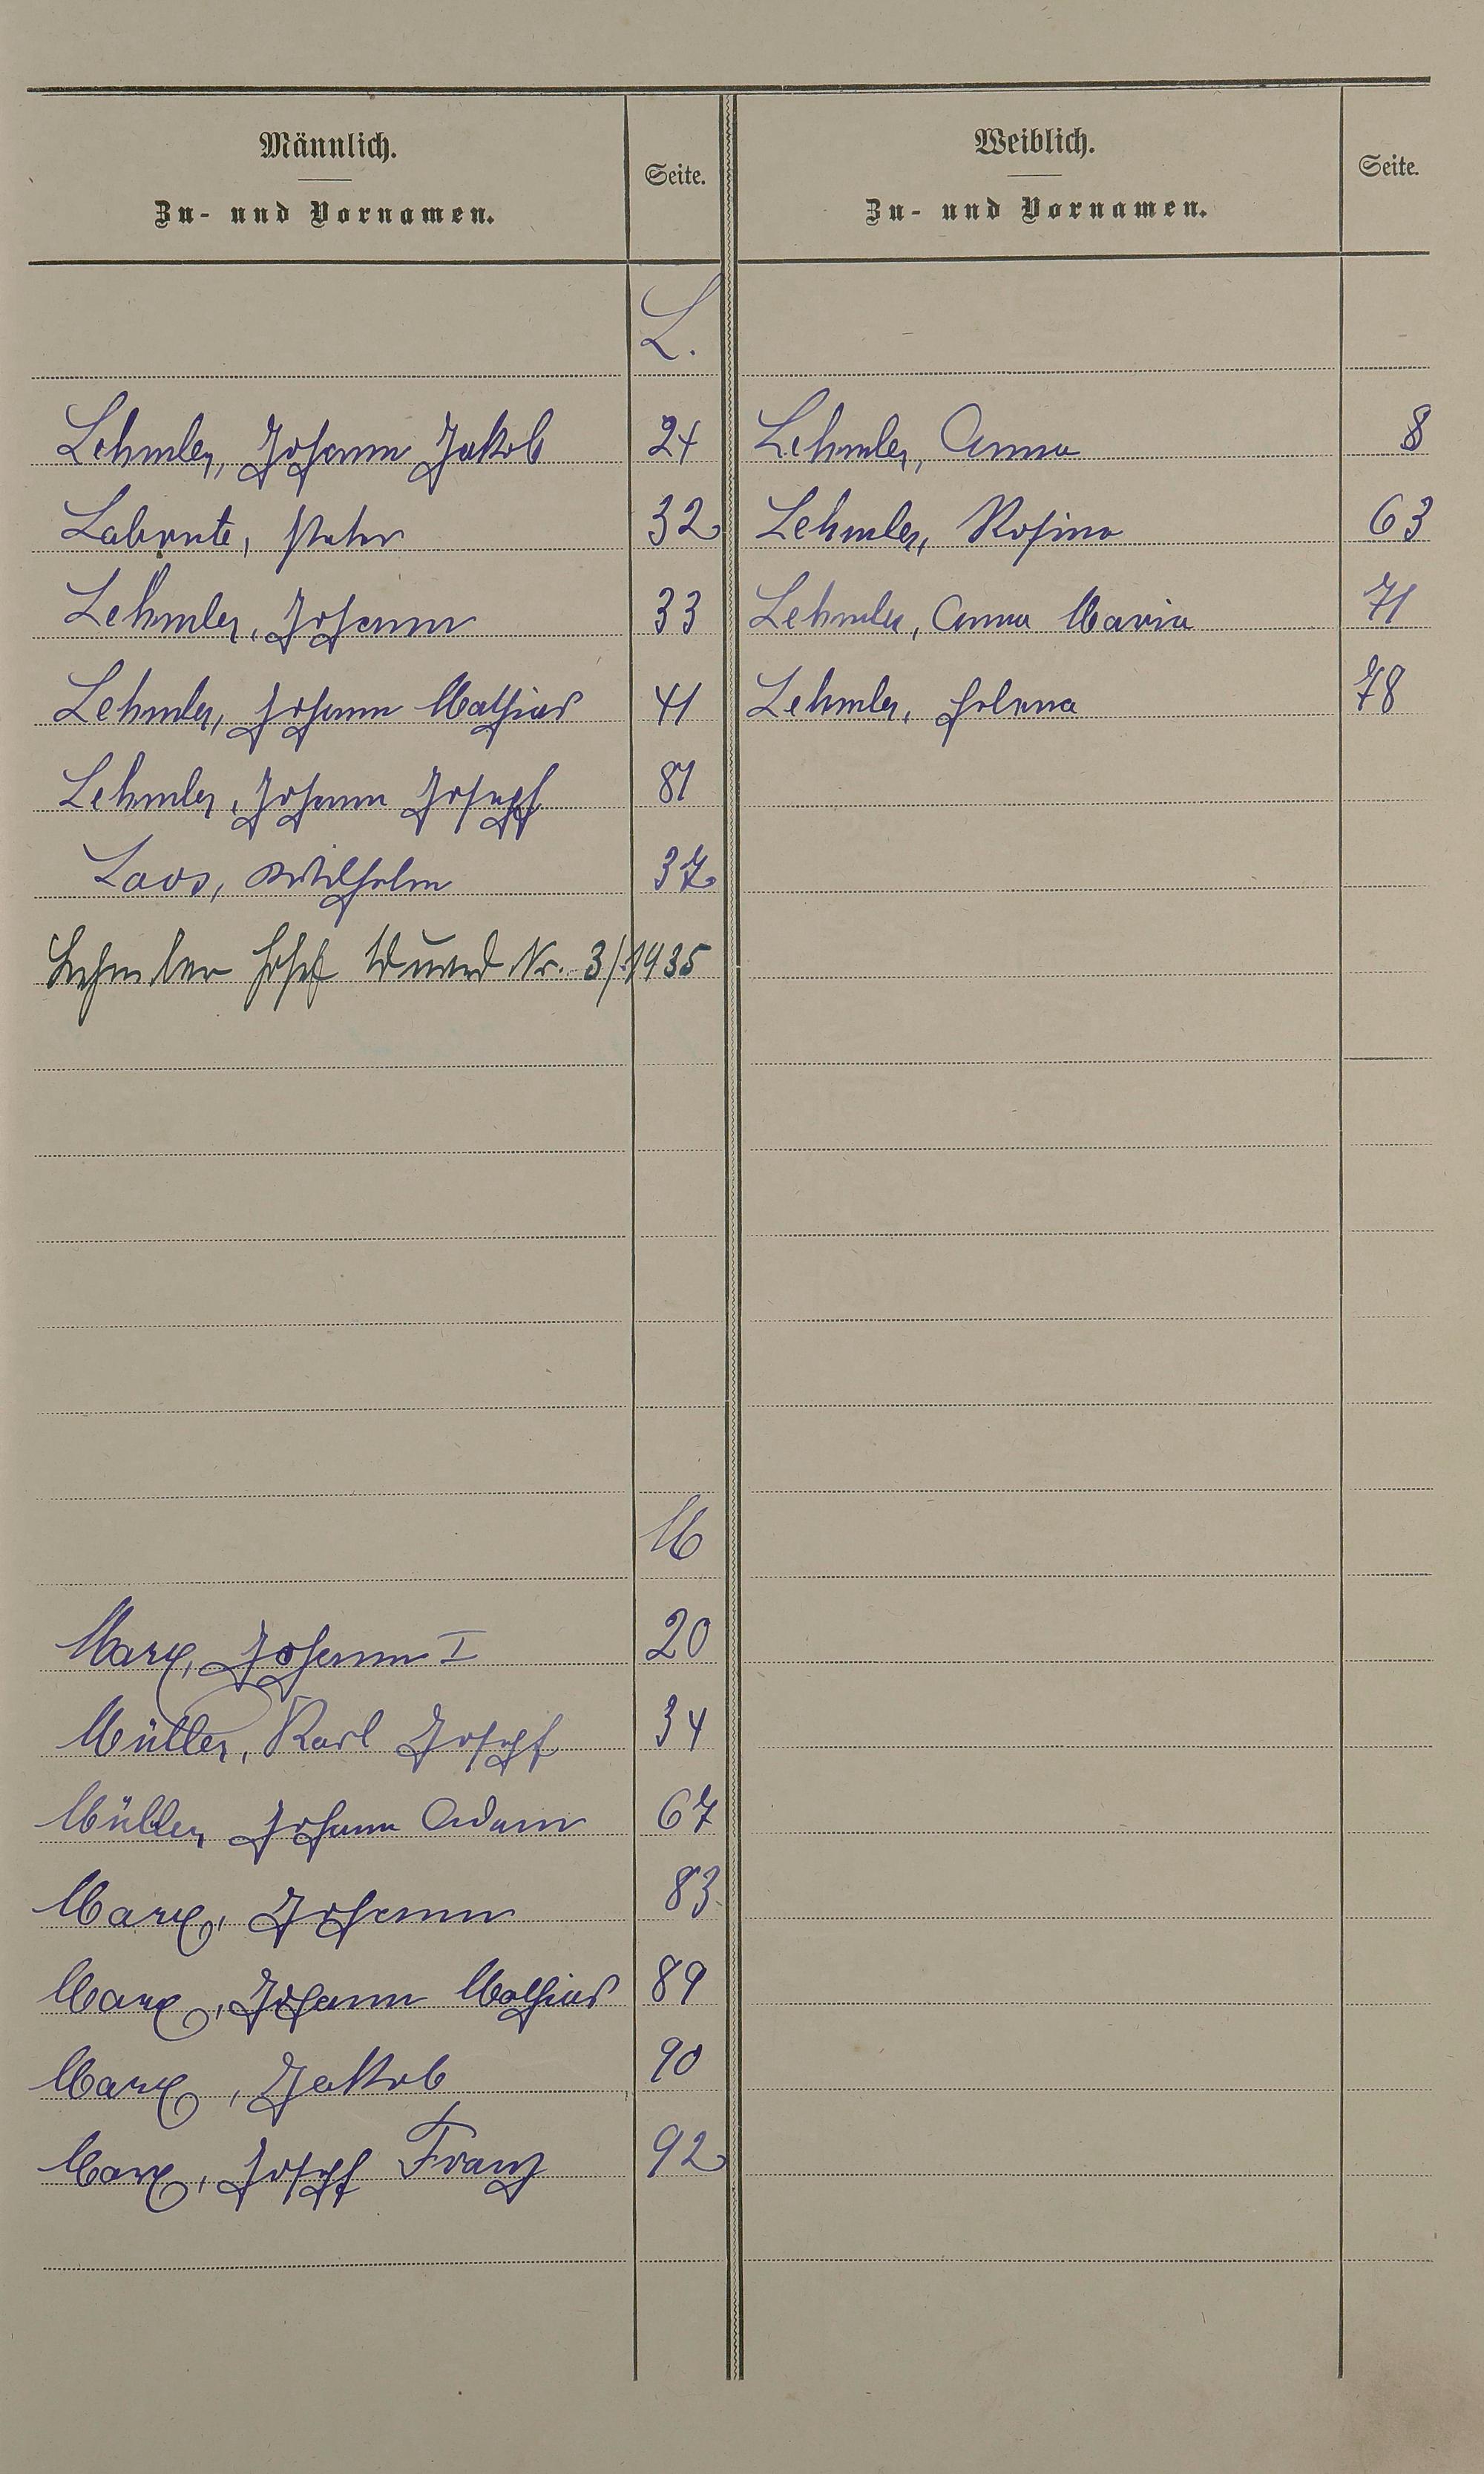 Männlich.
Zu- und Vornamen.
Seite.
Weiblich.
Zu- und Vornamen.
Seite.
L.
Lehmler, Johann Jakob 24 Lehmler, Anna 8
Labonte, Peter 32 Lehmler, Rosina 63
Lehmler, Johann 33 Lehmler, Anna Maria 71
Lehmler, Johann Mathias 41 Lehmler, Helena 78
Lehmler, Johann Josepf 81
Laos, Wilhelm 37
Lehmler Josef Eduard Nr. 3/1935
M
Marx, Johann I 20
Müller, Karl Josepf 34
Müller, Johann Adam 67
Marx, Johann 83
Marx, Johann Mathias 89
Marx, Jakob 90
Marx, Josepf Franz 92